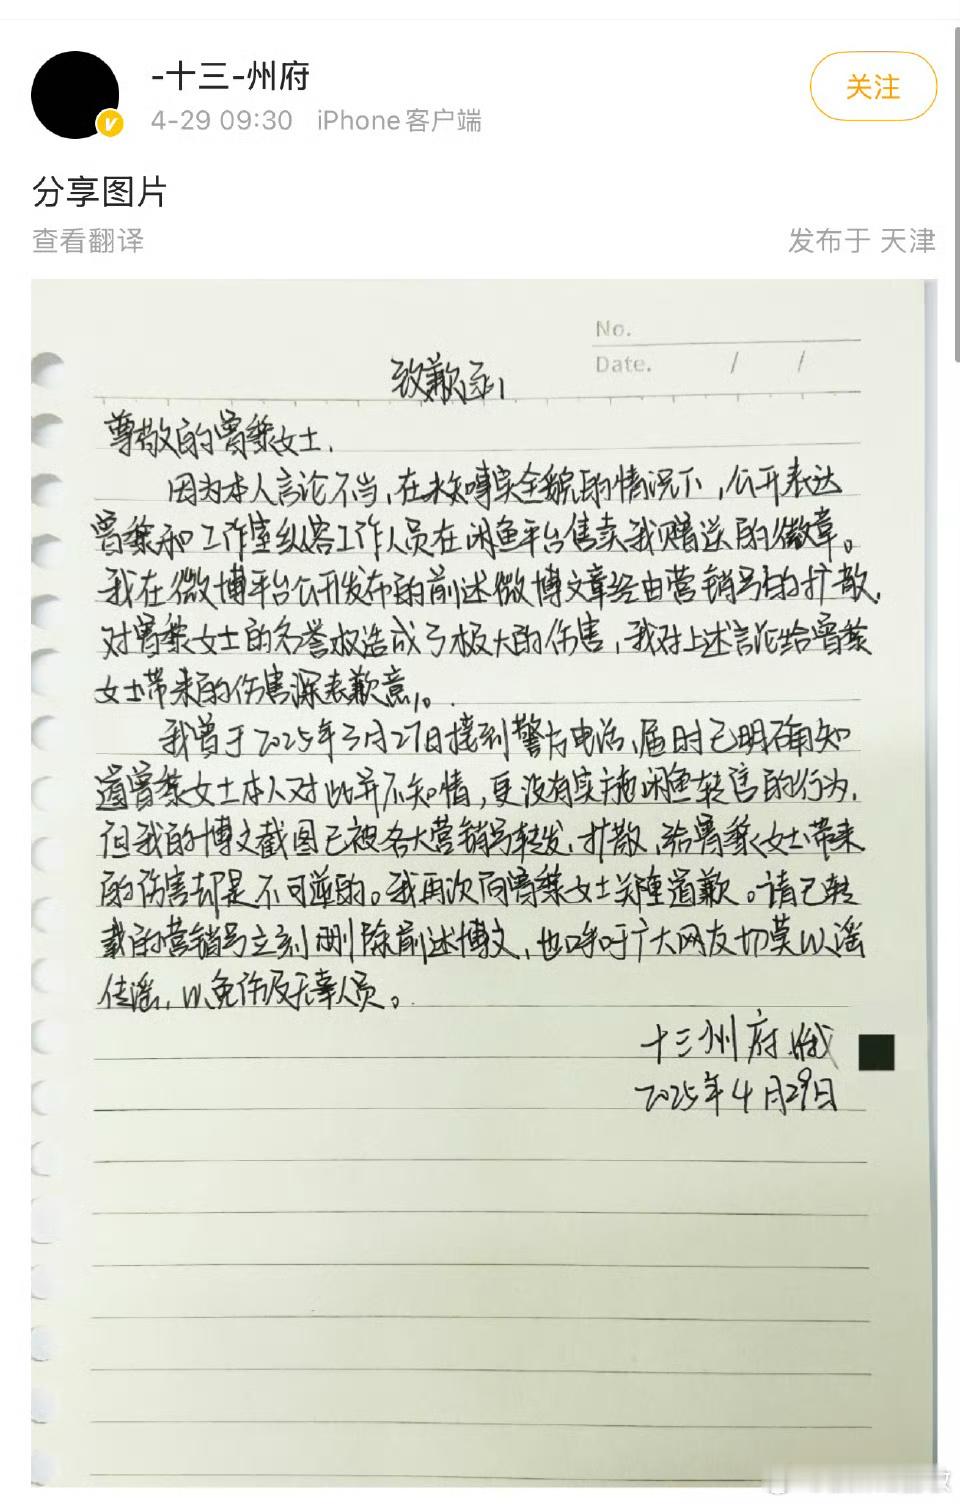 -十三-州府
4-29 09:30 iPhone客户端
关注
分享图片
查看翻译
发布于 天津
No.
Date. / /
致歉函
尊敬的曾黎女士.
因为本人言论不当,在未知事实全貌的情况下,公开表达
曾黎和工作室纵容工作人员在闲鱼平台售卖我赠送的徽章。
我在微博平台公开发布的前述微博文章经由营销号的扩散,
对曾黎女士的名誉权造成了极大的伤害,我对上述言论给曾黎
女士带来的伤害深表歉意。
我曾于2025年3月27日接到警方电话,届时已明确知
道曾黎女士本人对此并不知情,更没有实施闲鱼转售的行为,
但我的博文截图已被各大营销号转发、扩散,给曾黎女士带来
的伤害却是不可逆的。我再次向曾黎女士郑重道歉。请已转
载的营销号立刻删除前述博文,也呼吁广大网友切莫以谣
传谣,以免伤及无辜人员。
十三州府
2025年4月29日